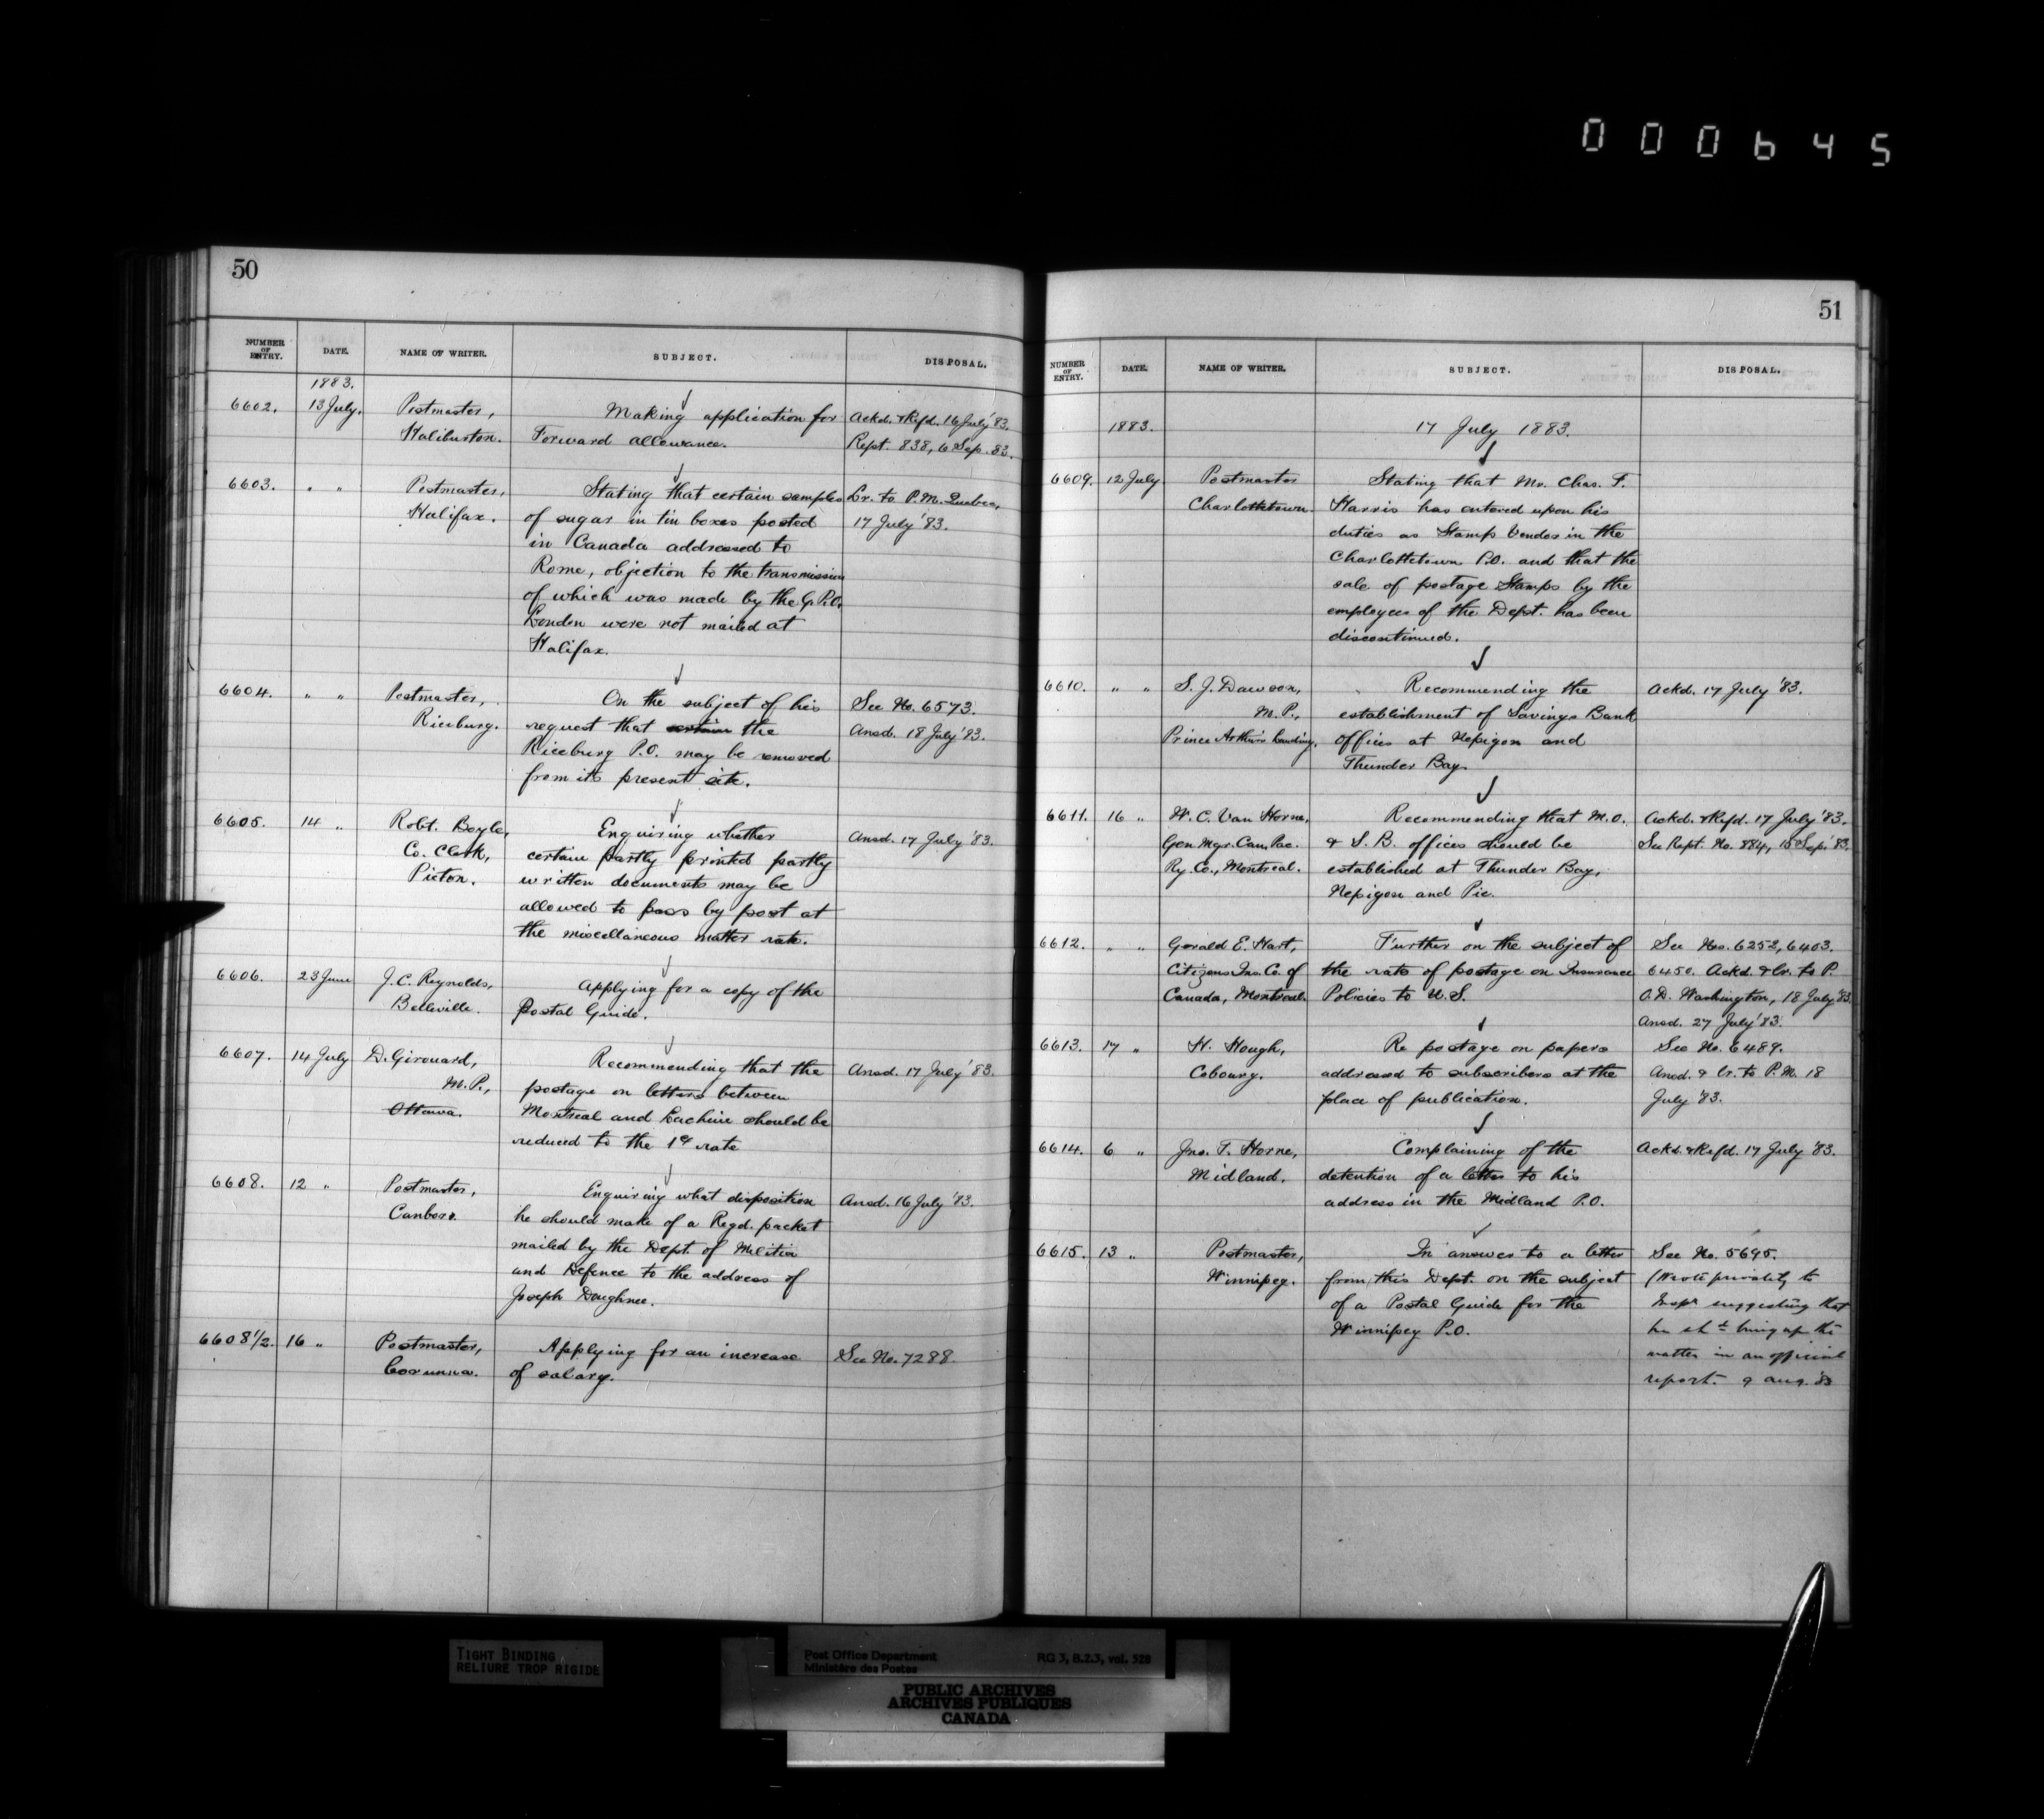 000645
50
NUMBER OF ENTRY. DATE. NAME OF WRITER. SUBJECT. DISPOSAL.
1883.
6602. 13 July. Postmaster, Making application for Ackd. & Refd. 16 July '83.
Haliburton. Forward allowance. Rept. 838, 6 Sep. 83.
6603. " " Postmaster, Stating that certain samples Lr. to P.M. Quebec,
Halifax. of sugar in tin boxes posted 17 July '83.
in Canada addressed to
Rome, objection to the transmission
of which was made by the G.P.O.
London were not mailed at
Halifax.
6604. " " Postmaster, On the subject of his See No. 6573.
Riceburg. request that certain the Ansd. 18 July '83.
Riceburg P.O. may be removed
from its present site.
6605. 14 " Robt. Boyle, Enquiring whether Ansd. 17 July '83.
Co. Clerk, certain partly printed partly
Picton. written documents may be
allowed to pass by post at
the miscellaneous matter rate.
6606. 23 June J.C. Reynolds, Applying for a copy of the
Belleville. Postal Guide.
6607. 14 July D. Girouard, Recommending that the Ansd. 17 July '83.
M.P., postage on letters between
Ottawa. Montreal and Lachine should be
reduced to the 1¢ rate
6608. 12 " Postmaster, Enquiring what disposition Ansd. 16 July '83.
Canboro. he should make of a Regd. packet
mailed by the Dept. of Militia
and Defence to the address of
Joseph
6608 1/2. 16 " Postmaster, Applying for an increase See No. 7288.
Corunna. of salary.
51
NUMBER OF ENTRY. DATE. NAME OF WRITER. SUBJECT. DISPOSAL.
1883. 17 July 1883.
6609. 12 July Postmaster Stating that Mr. Chas. F.
Charlottetown. Harris has entered upon his
duties as Stamp Vendor in the
Charlottetown P.O. and that the
sale of postage Stamps by the
employees of the Dept. has been
discontinued.
6610. " " S. J. Dawson, Recommending the Ackd. 17 July '83.
M.P., establishment of Savings Bank
Prince Arthur's Landing. offices at Nepigon and
Thunder Bay.
6611. 16 " W. C. Van Horne, Recommending that M.O. Ackd. & Refd. 17 July '83.
Gen. Mgr. Can. Pac. & S. B. offices should be See Rept. No. 884, 15 Sep. '83.
Ry. Co., Montreal. established at Thunder Bay,
Nepigon and Pic.
6612. " " Gerald E. Hart, Further on the subject of See Nos. 6252, 6403.
Citizens Ins. Co. of the rate of postage on Insurance 6450. Ackd. & Lr. to P.
Canada, Montreal. Policies to U.S. O.D. Washington, 18 July '83.
Ansd. 27 July '83.
6613. 17 " H. Hough, Re postage on papers See No. 6489.
Cobourg. addressed to subscribers at the Ansd. & lr. to P.M. 18
place of publication. July '83.
6614. 6 " Jno. T. Horne, Complaining of the Ackd. & Refd. 17 July '83.
Midland. detention of a letter to his
address in the Midland P.O.
6615. 13 " Postmaster, In answer to a letter See No. 5695.
Winnipeg. from this Dept. on the subject (Wrote privately to
of a Postal Guide for the Inspr suggesting that
Winnipeg P.O. he shd bring up the
matter in an official
report. 9 Aug. '83
TIGHT BINDING
RELIURE TROP RIGIDE
Post Office Department RG 3, B.2.3, vol. 528
Ministère des Postes
PUBLIC ARCHIVES
ARCHIVES PUBLIQUES
CANADA